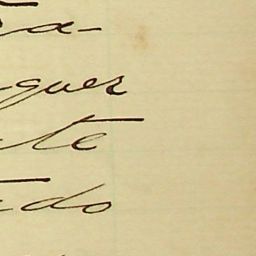 a-
guer
te
do